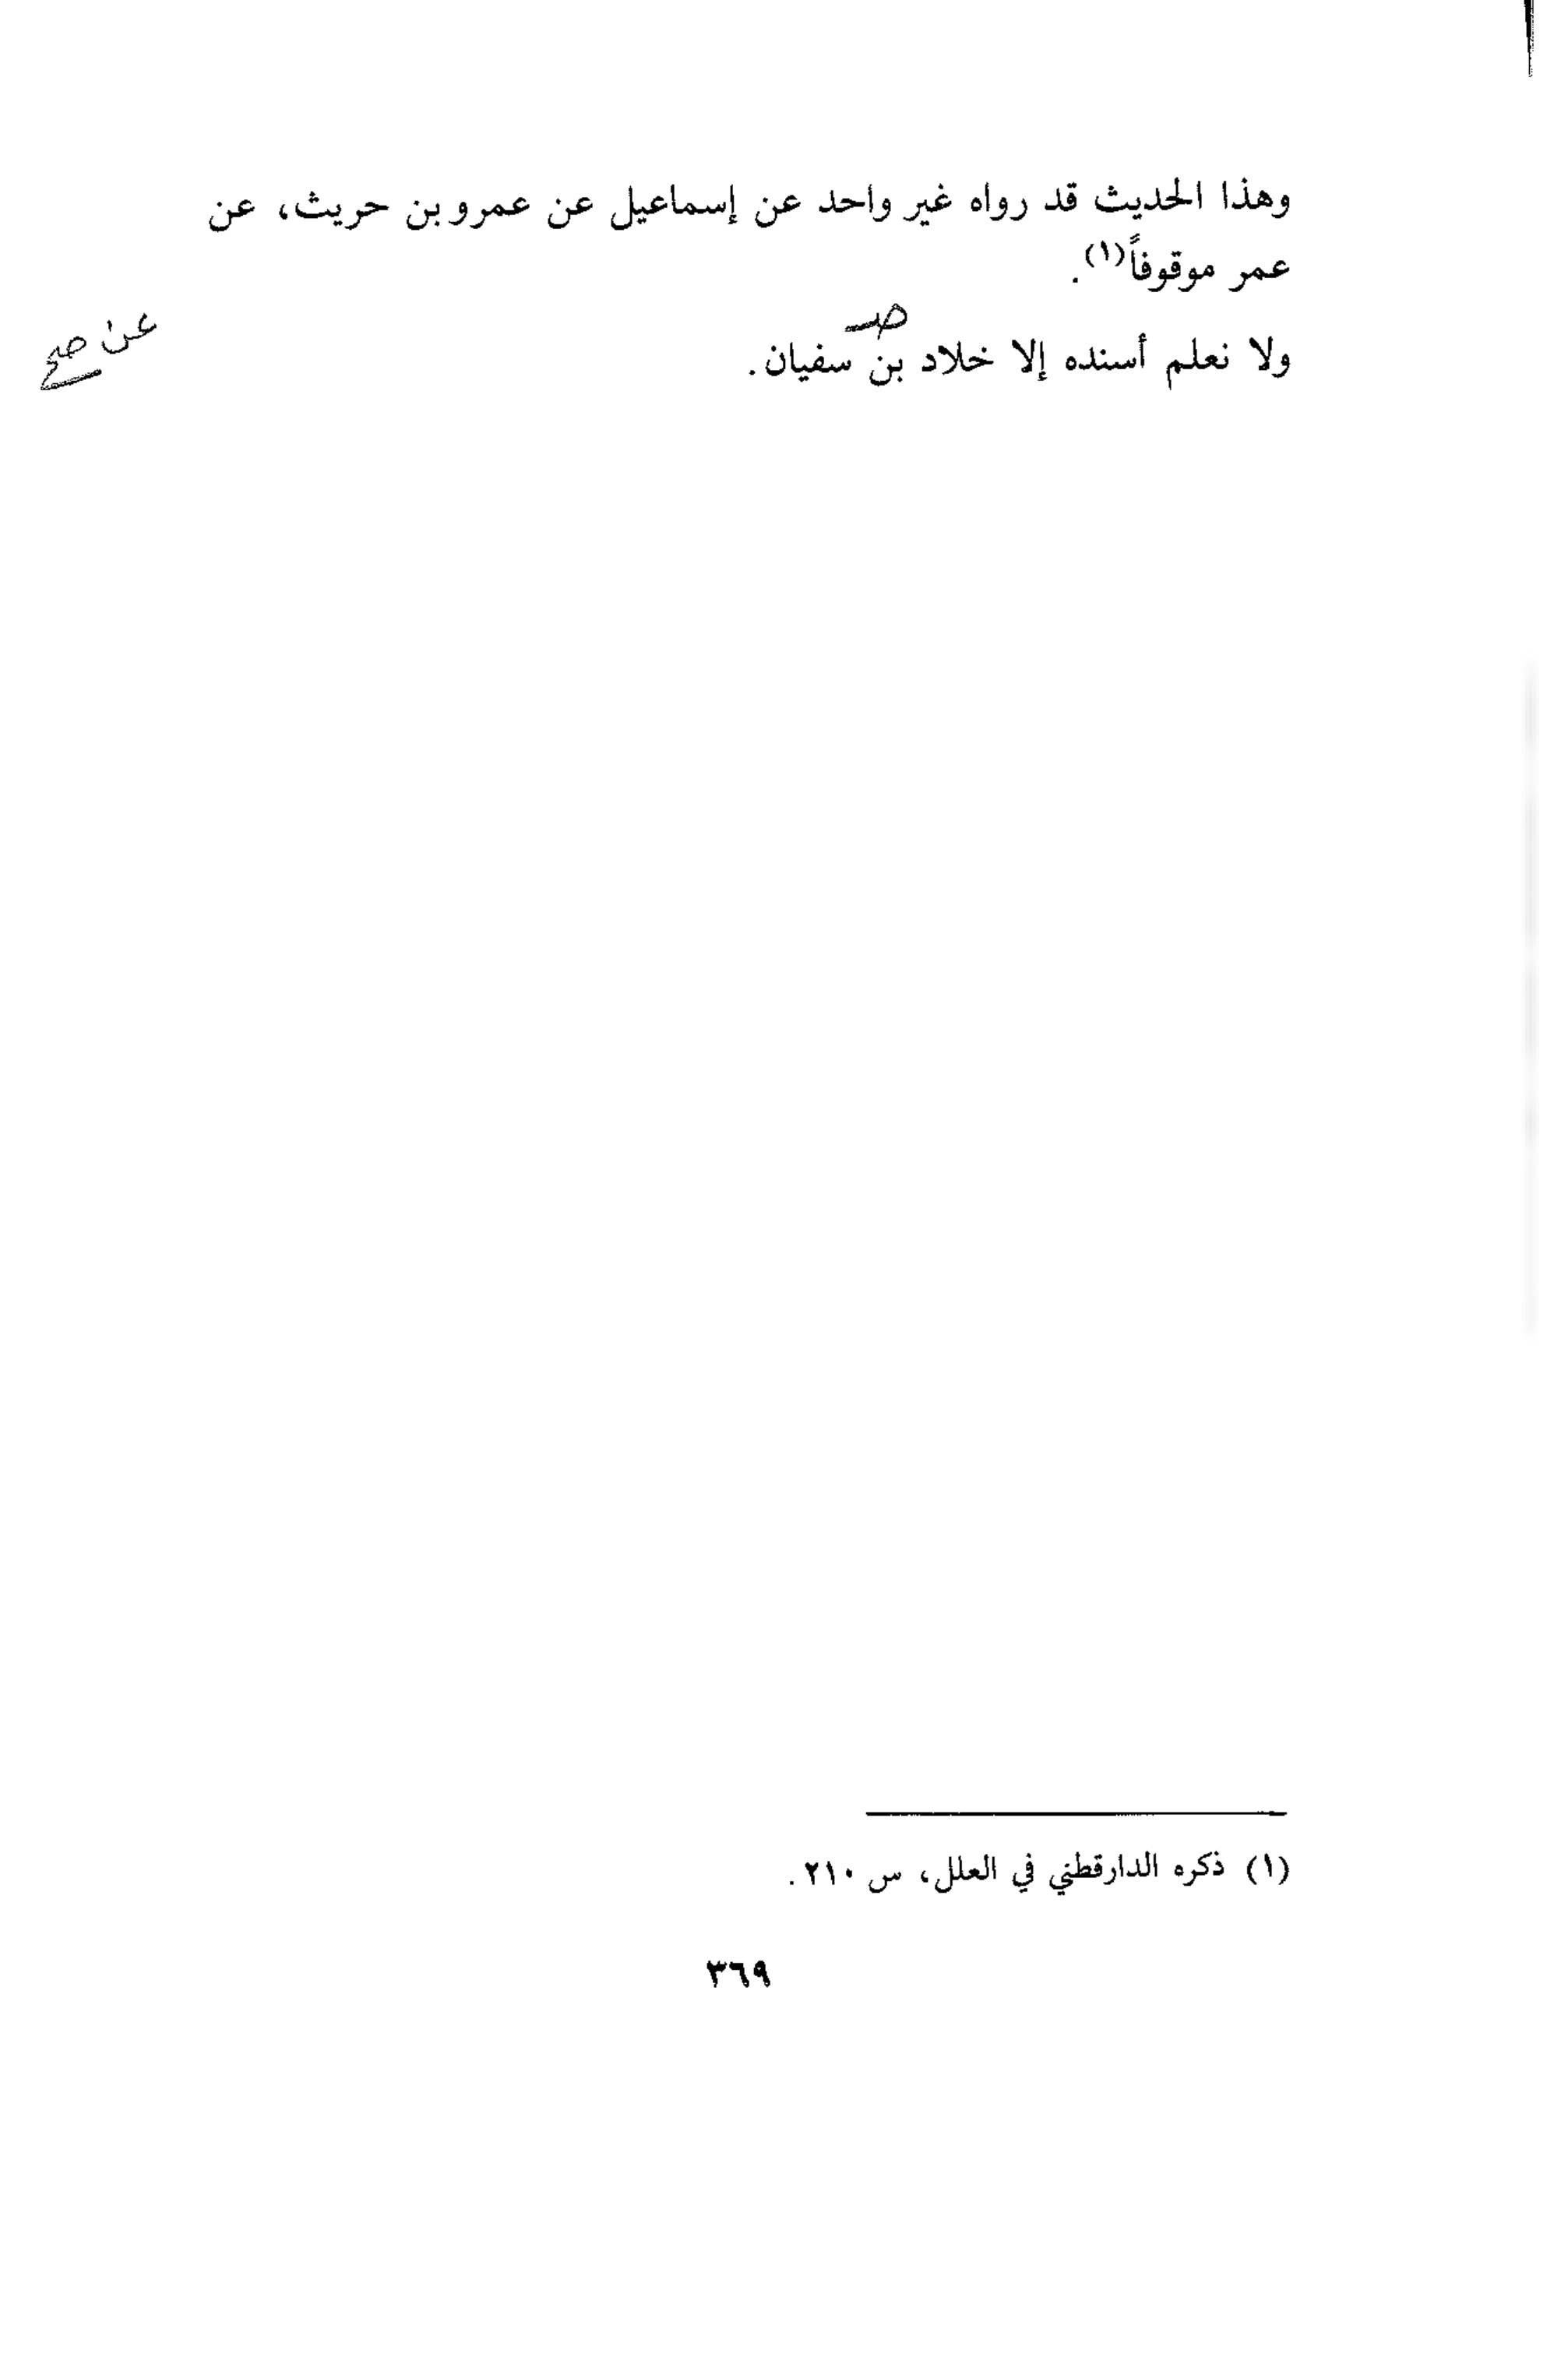 وهذا الحديث قد رواه غير واحد عن إسماعيل عن عمرو بن حريث، عن
عمر موقوفاً(١).
صـ
ولا نعلم أسنده إلا خلاد بن سفيان.
عن صح
(١) ذكره الدارقطني في العلل، س ٢١٠.
٣٦٩